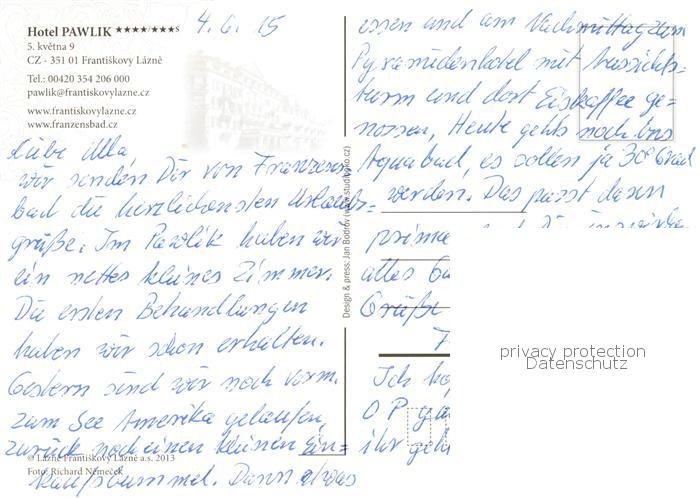 Hotel PAWLIK ★★★★/★★★S
5. května 9
CZ - 351 01 Františkovy Lázně
Tel.: 00420 354 206 000
pawlik@frantiskovylazne.cz
www.frantiskovylazne.cz
www.franzensbad.cz
4.6.15
Liebe Ulla
wir senden Dir von Franzens
bad die herzlichensten Urlaubs=
grüße. Im Pawlik haben wir
ein nettes kleines Zimmer.
Die ersten Behandlungen
haben wir schon erhalten.
Gestern sind wir noch vorm.
zum See Amerika gelaufen,
zurück noch einen kleinen Ein=
kaufsbummel. Dann etwas
© Lázně Františkovy Lázně a.s. 2013
Foto: Richard Němeček
Design & press: Jan Bodrov (www.studiopino.cz)
essen und am Nachmittag zum
Pyramidenhotel mit Aussichts=
turm und dort Eiskaffee ge=
nossen, Heute gehts noch ins
Aquabad, es sollen ja 30 Grad
werden. Das passt dann
prima
alles
Grüße
Ich
O P
ihr
privacy protection
Datenschutz